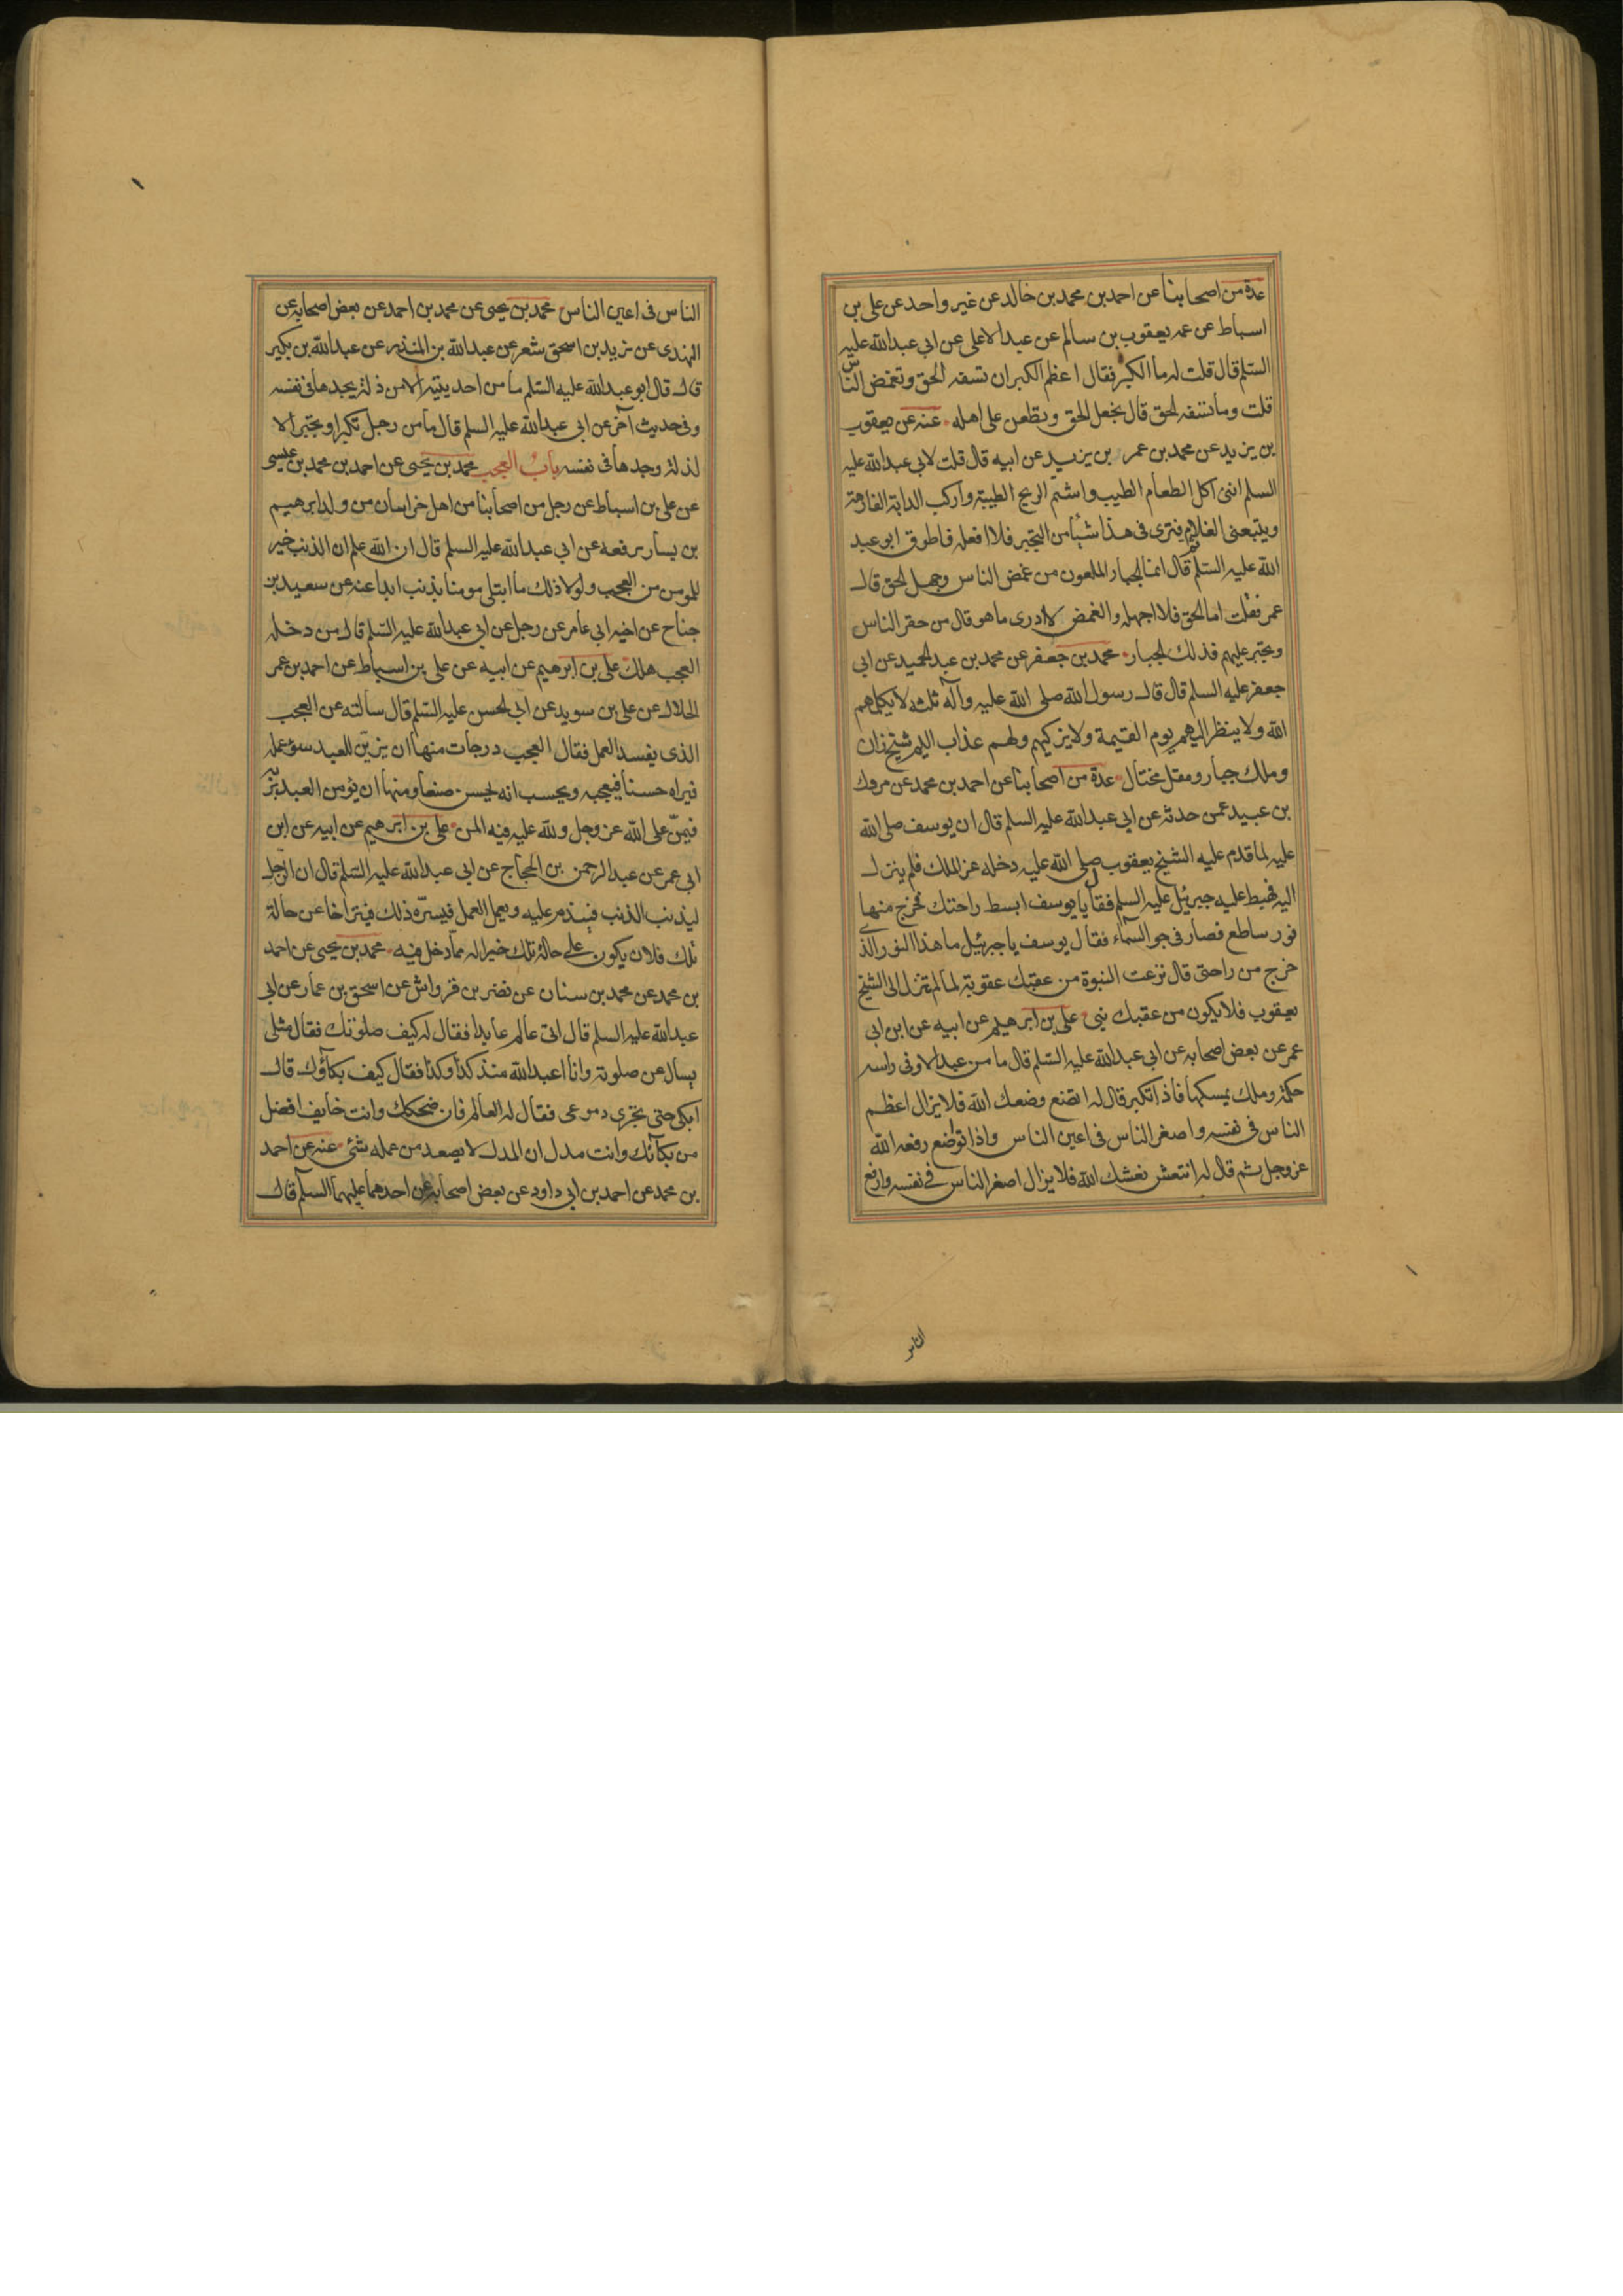 عدة من اصحابنا عن احمد بن محمد بن خالد عن غير واحد عن على بن
اسباط عن عمه يعقوب بن سالم عن عبد الاعلى عن ابي عبد الله عليه
السلم قال قلت له ما الكبر فقال اعظم الكبر ان تسفه الحق وتغمض الناس
قلت وما تسفه الحق قال يجهل الحق ويطعن على اهله عنه عن يعقوب
بن يزيد عن محمد بن عمر بن يزيد عن ابيه قال قلت لابي عبد الله عليه
السلم اننى آكل الطعام الطيب واشتم الريح الطيبة واركب الدابة الفارهة
ويتبعنى الغلام فترى فى هذا شيئا من التجبر فلا افعله فاطرق ابو عبد
الله عليه السلم ثم قال انما الجبار الملعون من غمض الناس وجهل الحق قال
عمر فقلت اما الحق فلا اجهله والغمض لا ادرى ما هو قال من حقر الناس
وتجبر عليهم فذلك الجبار محمد بن جعفر عن محمد بن عبد الحميد عن ابي
جعفر عليه السلم قال قال رسول الله صلى الله عليه وآله ثلثه لا يكلمهم
الله ولا ينظر اليهم يوم القيمة ولا يزكيهم ولهم عذاب اليم شيخ زان
وملك جبار ومقل مختال عدة من اصحابنا عن احمد بن محمد عن مروك
بن عبيد عمن حدثه عن ابي عبد الله عليه السلم قال ان يوسف صلى الله
عليه لما قدم عليه الشيخ يعقوب صلى الله عليه دخله عز الملك فلم ينزل
اليه فهبط عليه جبرئيل عليه السلم فقال يا يوسف ابسط راحتك فخرج منها
نور ساطع فصار فى جو السماء فقال يوسف يا جبرئيل ما هذا النور الذى
خرج من راحتى قال نزعت النبوة من عقبك عقوبة لما لم تنزل الى الشيخ
يعقوب فلا يكون من عقبك نبى على بن ابرهيم عن ابيه عن ابن ابي
عمر عن بعض اصحابه عن ابي عبد الله عليه السلم قال ما من عبد الا وفى راسه
حكمة وملك يمسكها فاذا تكبر قال له اتضع وضعك الله فلا يزال اعظم
الناس فى نفسه واصغر الناس فى اعين الناس واذا تواضع رفعه الله
عز وجل ثم قال له انتعش نعشك الله فلا يزال اصغر الناس فى نفسه وارفع
الناس
الناس فى اعين الناس محمد بن يحيى عن محمد بن احمد عن بعض اصحابه عن
النهدى عن يزيد بن اسحق شعر عن عبد الله بن المنذر عن عبد الله بن بكير
قال قال ابو عبد الله عليه السلم ما من احد يتيه الا من ذلة يجدها فى نفسه
وفى حديث آخر عن ابي عبد الله عليه السلم قال ما من رجل تكبر او تجبر الا
لذلة وجدها فى نفسه باب العجب محمد بن يحيى عن احمد بن محمد بن عيسى
عن على بن اسباط عن رجل من اصحابنا من اهل خراسان من ولد ابرهيم
بن يسار يرفعه عن ابي عبد الله عليه السلم قال ان الله علم ان الذنب خير
للمومن من العجب ولولا ذلك ما ابتلى مومنا بذنب ابدا عنه عن سعيد بن
جناح عن اخيه ابي عامر عن رجل عن ابي عبد الله عليه السلم قال من دخله
العجب هلك على بن ابرهيم عن ابيه عن على بن اسباط عن احمد بن عمر
الحلال عن على بن سويد عن ابي الحسن عليه السلم قال سالته عن العجب
الذى يفسد العمل فقال العجب درجات منها ان يزين للعبد سوء عمله
فيراه حسنا فيعجبه ويحسب انه يحسن صنعا ومنها ان يؤمن العبد بربه
فيمن على الله عز وجل ولله عليه فيه المن على بن ابرهيم عن ابيه عن ابن
ابي عمر عن عبد الرحمن بن الحجاج عن ابي عبد الله عليه السلم قال ان الرجل
ليذنب الذنب فيندم عليه ويعمل العمل فيسره ذلك فيتراخا عن حالة
تلك فلان يكون على حالة تلك خير اله مما دخل فيه محمد بن يحيى عن احمد
بن محمد عن محمد بن سنان عن نضر بن قرواش عن اسحق بن عمار عن ابي
عبد الله عليه السلم قال اتى عالم عابدا فقال له كيف صلوتك فقال مثلى
يسال عن صلوته وانا اعبد الله منذ كذا وكذا فقال كيف بكاؤك قال
ابكى حتى تجرى دموعى فقال له العالم فان ضحكك وانت خايف افضل
من بكائك وانت مدل ان المدل لا يصعد من عمله شئ عنه عن احمد
بن محمد عن احمد بن ابي داود عن بعض اصحابه عن احدهما عليهما السلم قال